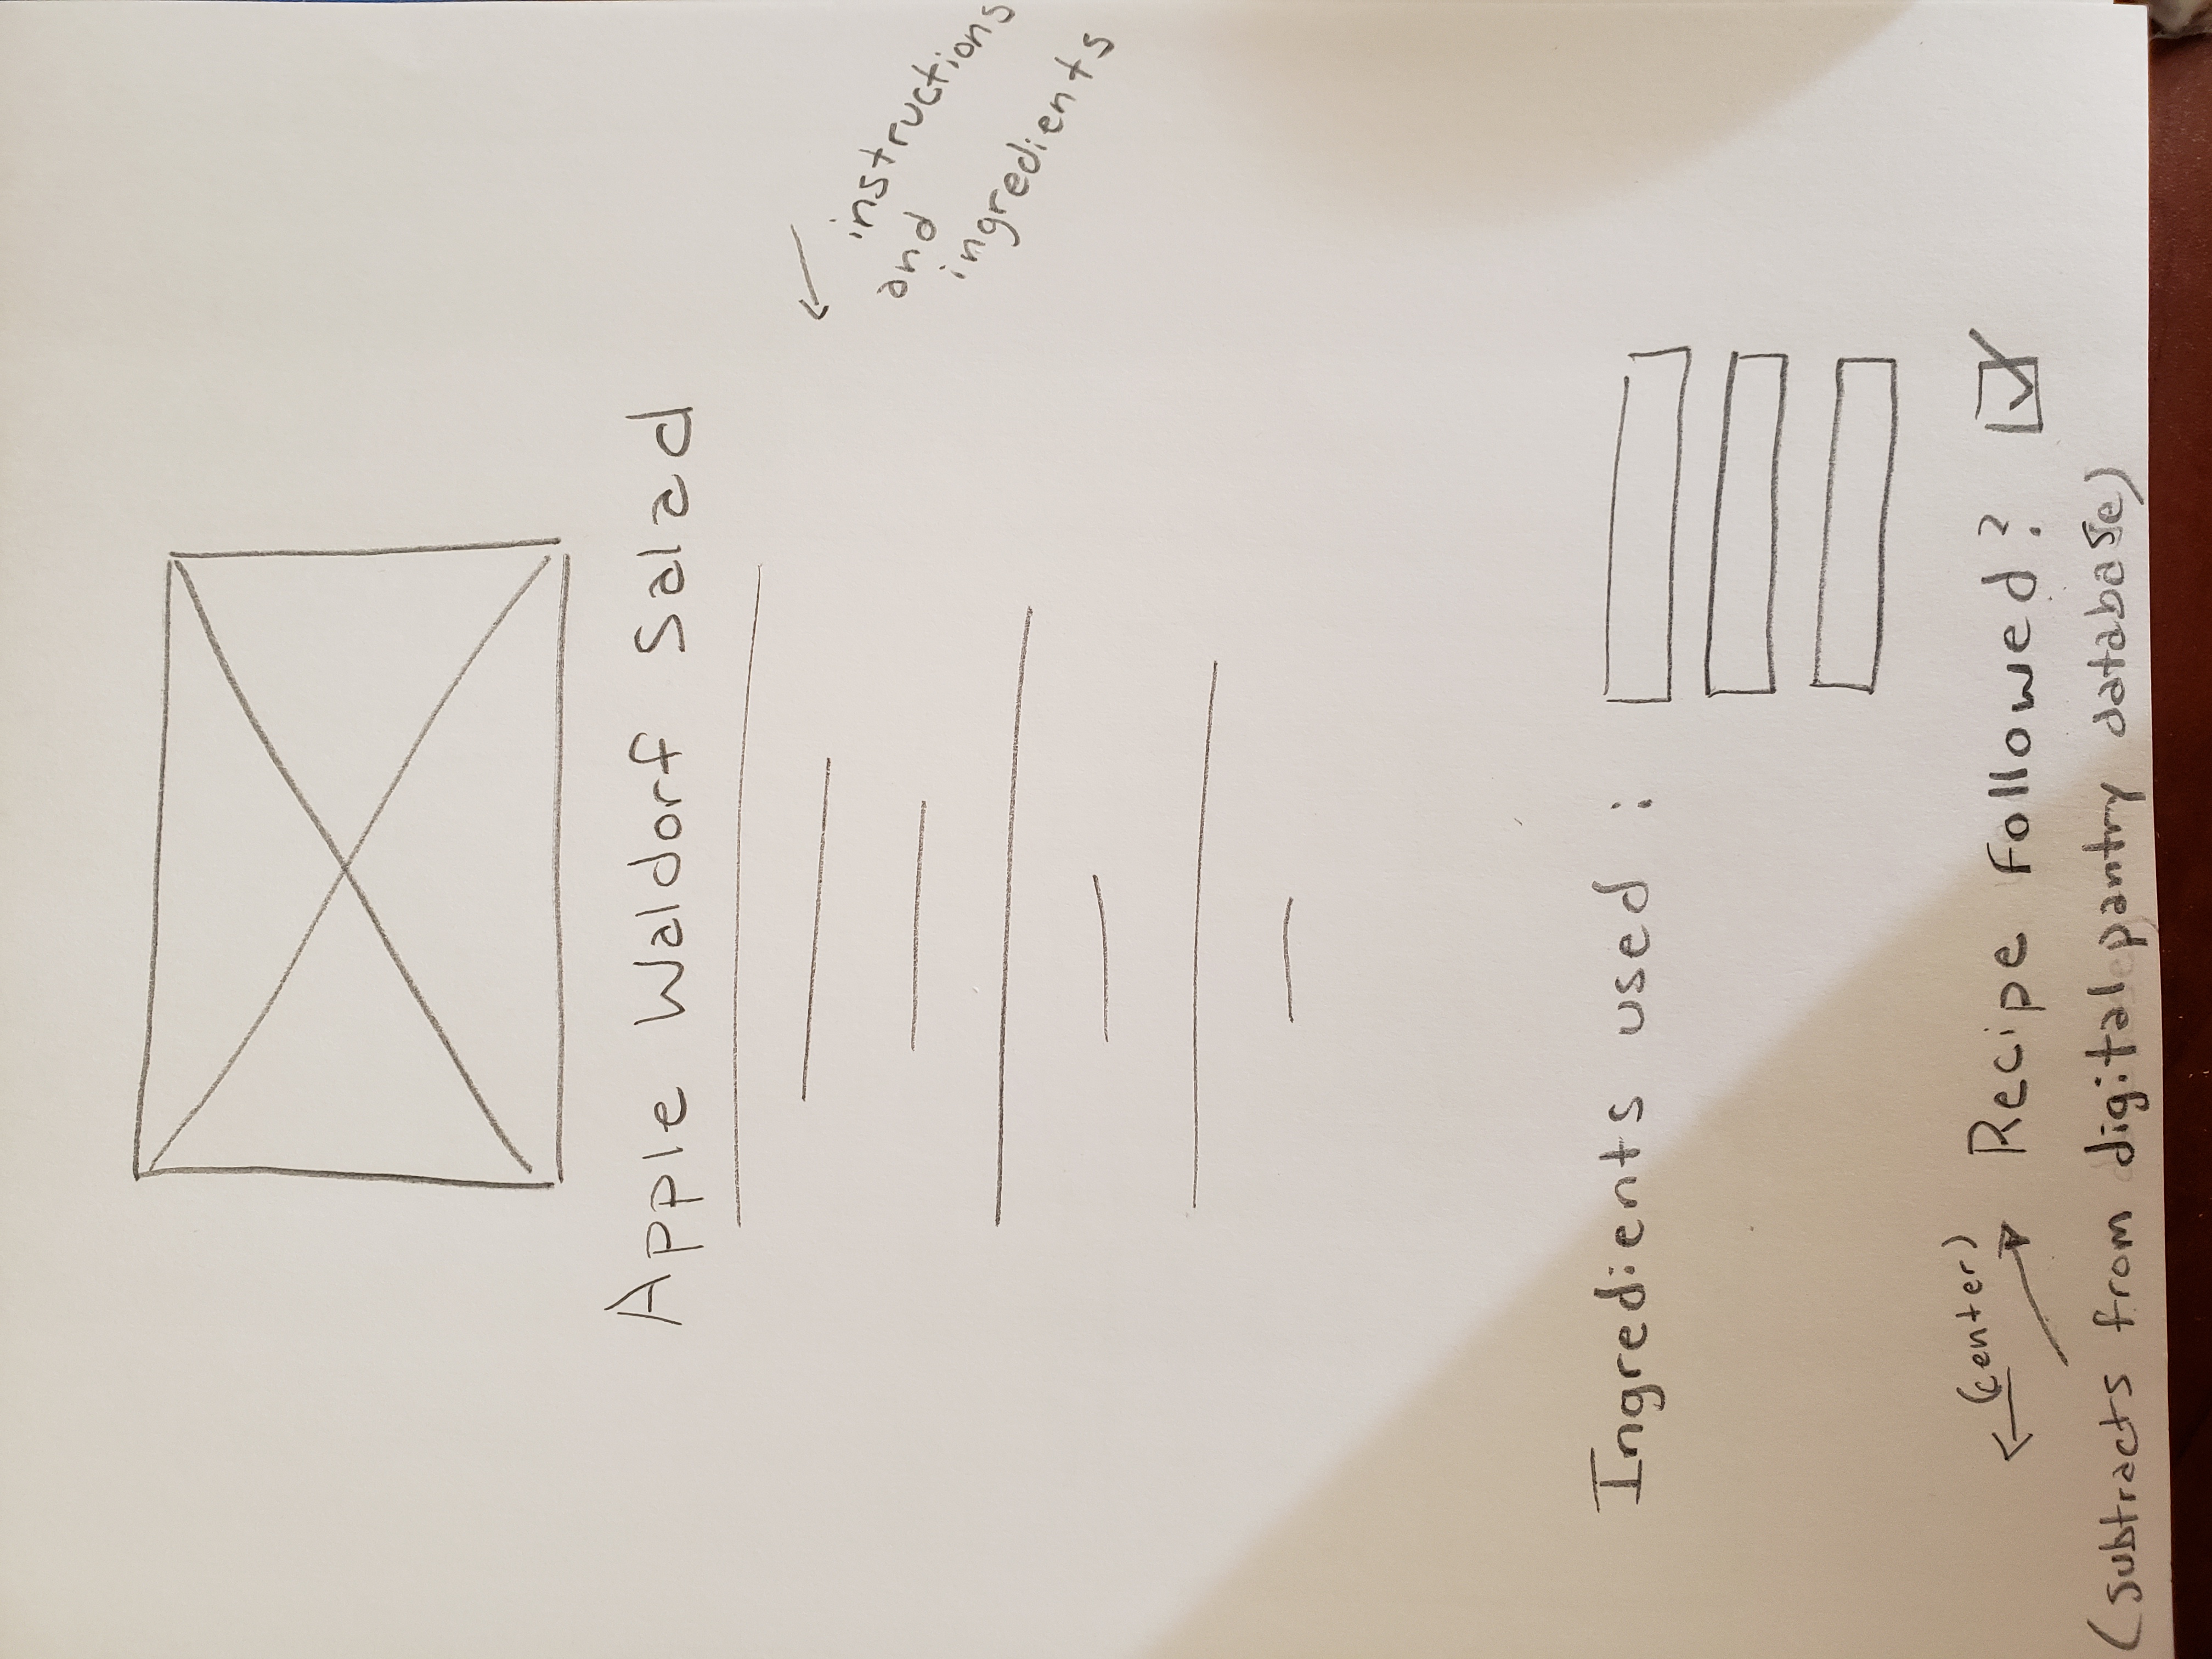 Apple Waldorf Salad
instructions
and
ingredients
Ingredients used :
(center)
Recipe followed?
(subtracts from digital pantry database)